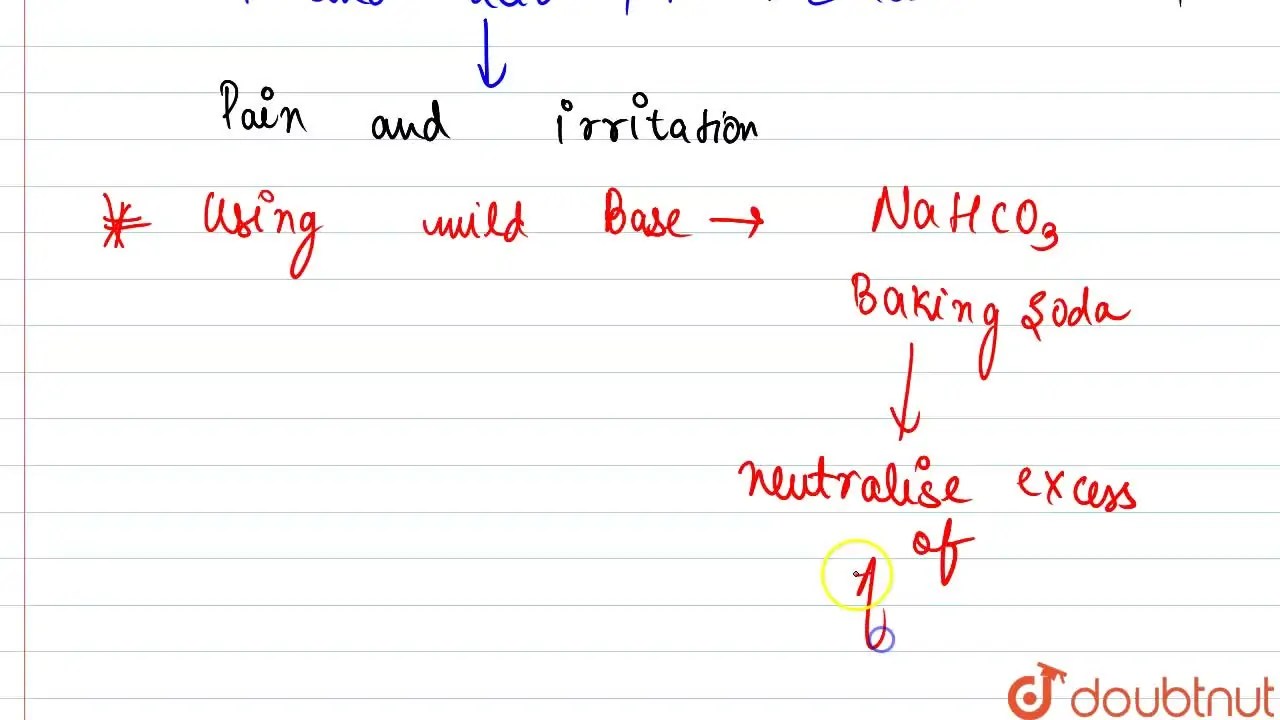 Pain and irritation
* Using mild Base → NaHCO₃
Baking Soda
↓
neutralise excess
of
doubtnut